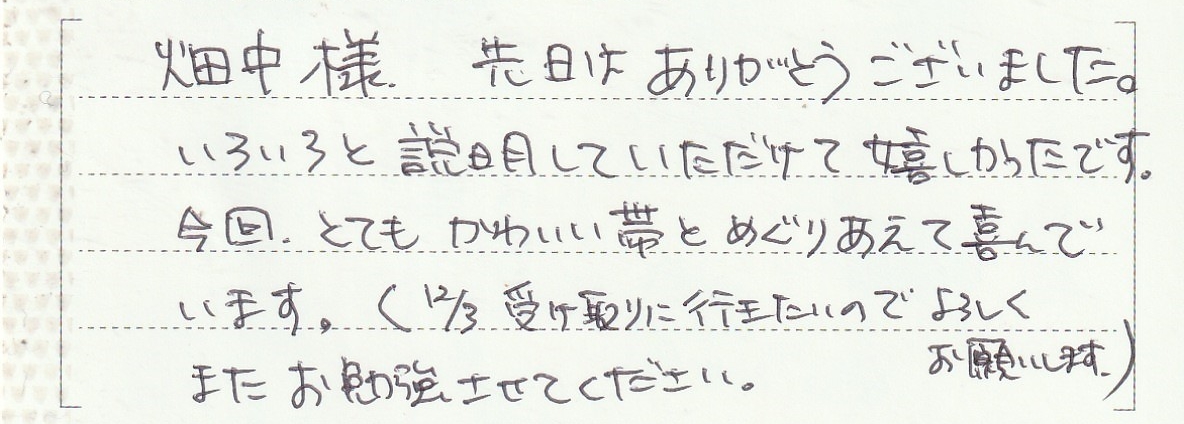 畑中様. 先日は ありがとうございました。
いろいろと説明していただけて嬉しかったです。
今回. とても かわいい帯とめぐりあえて喜んで
います。(12/3 受け取りに行きたいのでよろしく
お願いします.)
また お勉強させてください。